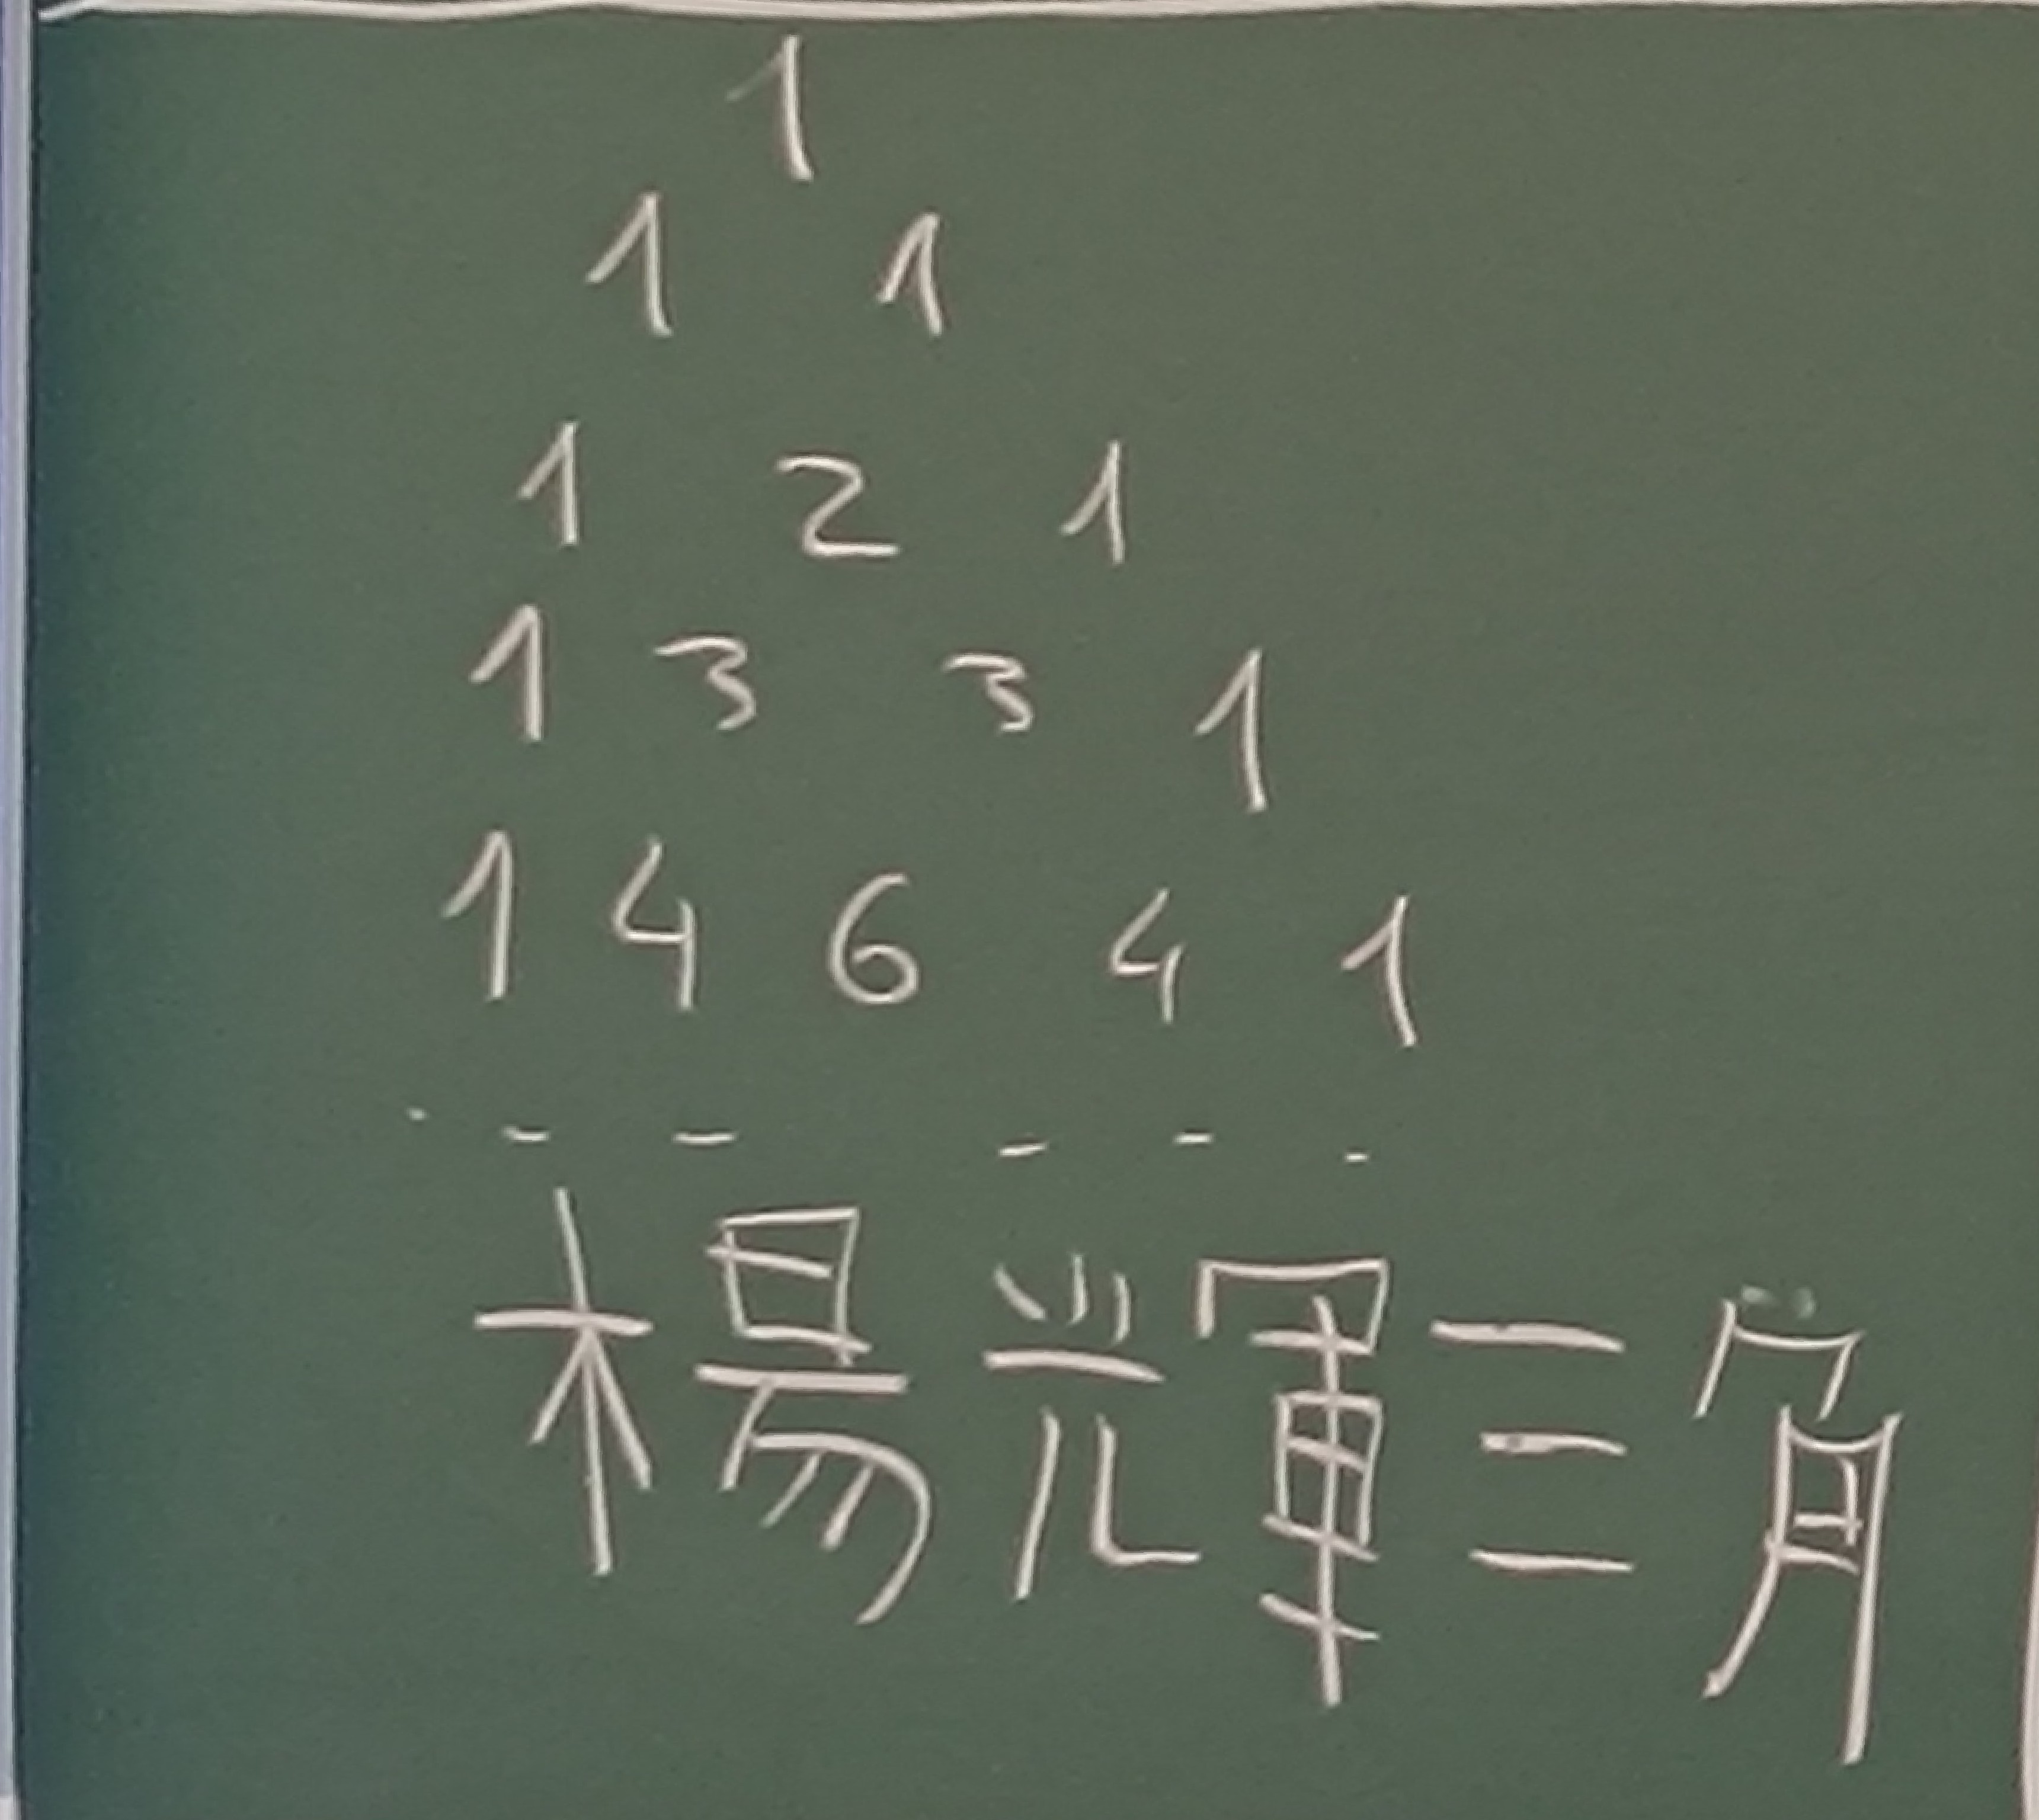 1
1 1
1 2 1
1 3 3 1
1 4 6 4 1
. - - - - .
楊輝三角